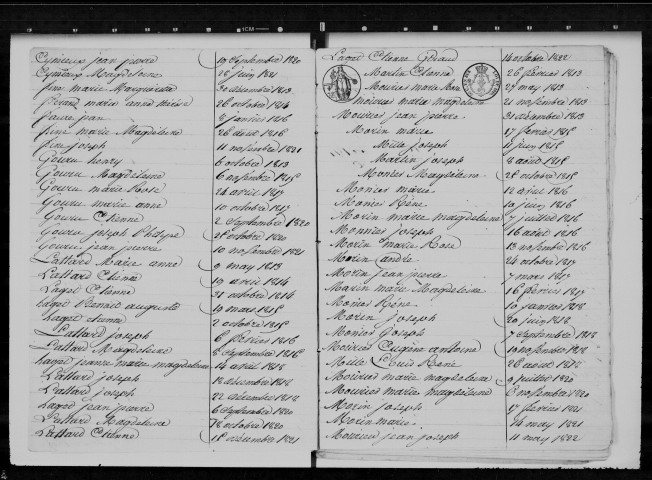 Eymieux jean pierre 19 Septembre 1820
Eymieux Magdeleine 28 juin 1821
fine Marie Margueritte 30 décembre 1813
marie anne 26 octobre 1814
faure jean 8 janvier 1816
fine marie Magdeleine 26 août 1816
fine joseph 11 novembre 1821
Gouru henry 6 octobre 1813
Gouru Magdeleine 6 novembre 1815
Gouru marie Rose 24 avril 1817
Gouru marie anne 10 octobre 1817
Gouru Etienne 2 Septembre 1820
Gouru joseph Philippe 25 octobre 1820
Gouru jean pierre 10 novembre 1821
Lattard Marie anne 9 may 1813
Lattard Etienne 19 avril 1814
Laget Etienne 31 octobre 1814
Laget Benoit auguste 19 mars 1815
Laget etienne 2 octobre 1815
Lattard joseph 6 février 1816
Lattard Magdeleine 8 Septembre 1816
Laget jeanne marie magdeleine 14 avril 1818
Lattard joseph 18 décembre 1818
Lattard joseph 22 décembre 1818
Laget jean pierre 6 Septembre 1820
Lattard Magdeleine 18 octobre 1820
Lattard Etienne 18 décembre 1821
Laget Etienne Géraud 14 octobre 1822
Martin Etienne 26 février 1813
Mourier marie Rose 27 may 1813
marie magdeleine 21 novembre 1813
Mourier jean pierre 31 décembre 1813
Morin marie 17 février 1815
Mille joseph 11 juin 1815
Martin joseph 8 août 1815
Monier Magdeleine 28 octobre 1815
Monier marie 12 avril 1816
Monier Rene 10 juin 1816
Morin marie magdeleine 7 juillet 1816
Monier joseph 16 août 1816
Morin marie Rose 13 novembre 1816
Morin andré 24 octobre 1817
Morin jean pierre 7 mars 1817
Marin marie Magdeleine 16 février 1817
Monier Rene 10 janvier 1818
Morin joseph 20 juin 1818
Monier joseph 7 Septembre 1818
Mourier Eugène antoine 19 novembre 1818
Mille Louis Rene 26 août 1817
Mourier marie magdeleine 9 juillet 1820
Mourier marie magdeleine 6 novembre 1820
Morin joseph 17 février 1821
Morin marie 14 may 1821
Mourier jean joseph 11 may 1822